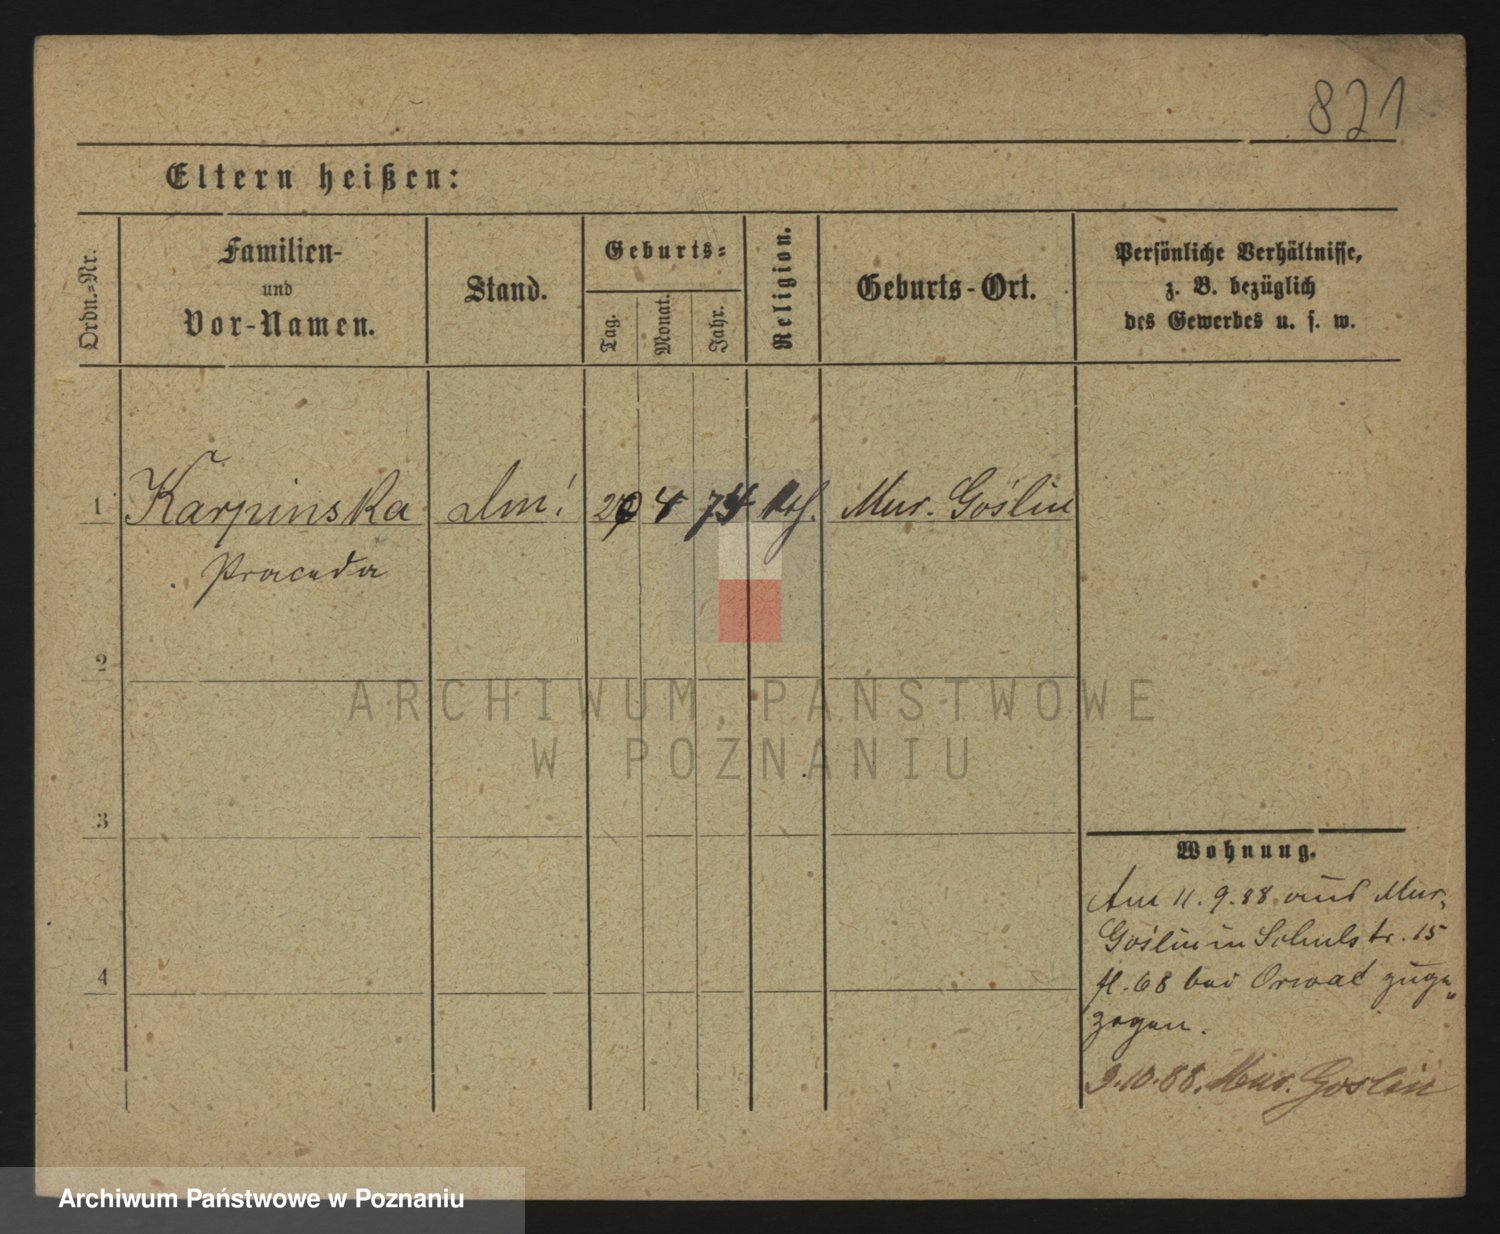 821
Eltern heißen:
Ordn.-Nr.
Familien-
und
Vor-Namen.
Stand.
Geburts-
Tag.
Monat.
Jahr.
Religion.
Geburts-Ort.
Persönliche Verhältnisse,
z. B. bezüglich
des Gewerbes u. s. w.
1 Karpinska 4 Mur. Goślin
2
3
4
Wohnung.
Am 11.9.88 aus Mur.
Goślin in Schulstr. 15
bei zuge„
zogen.
9.10.88. Mur. Goslin
ARCHIWUM PAŃSTWOWE
W POZNANIU
Archiwum Państwowe w Poznaniu